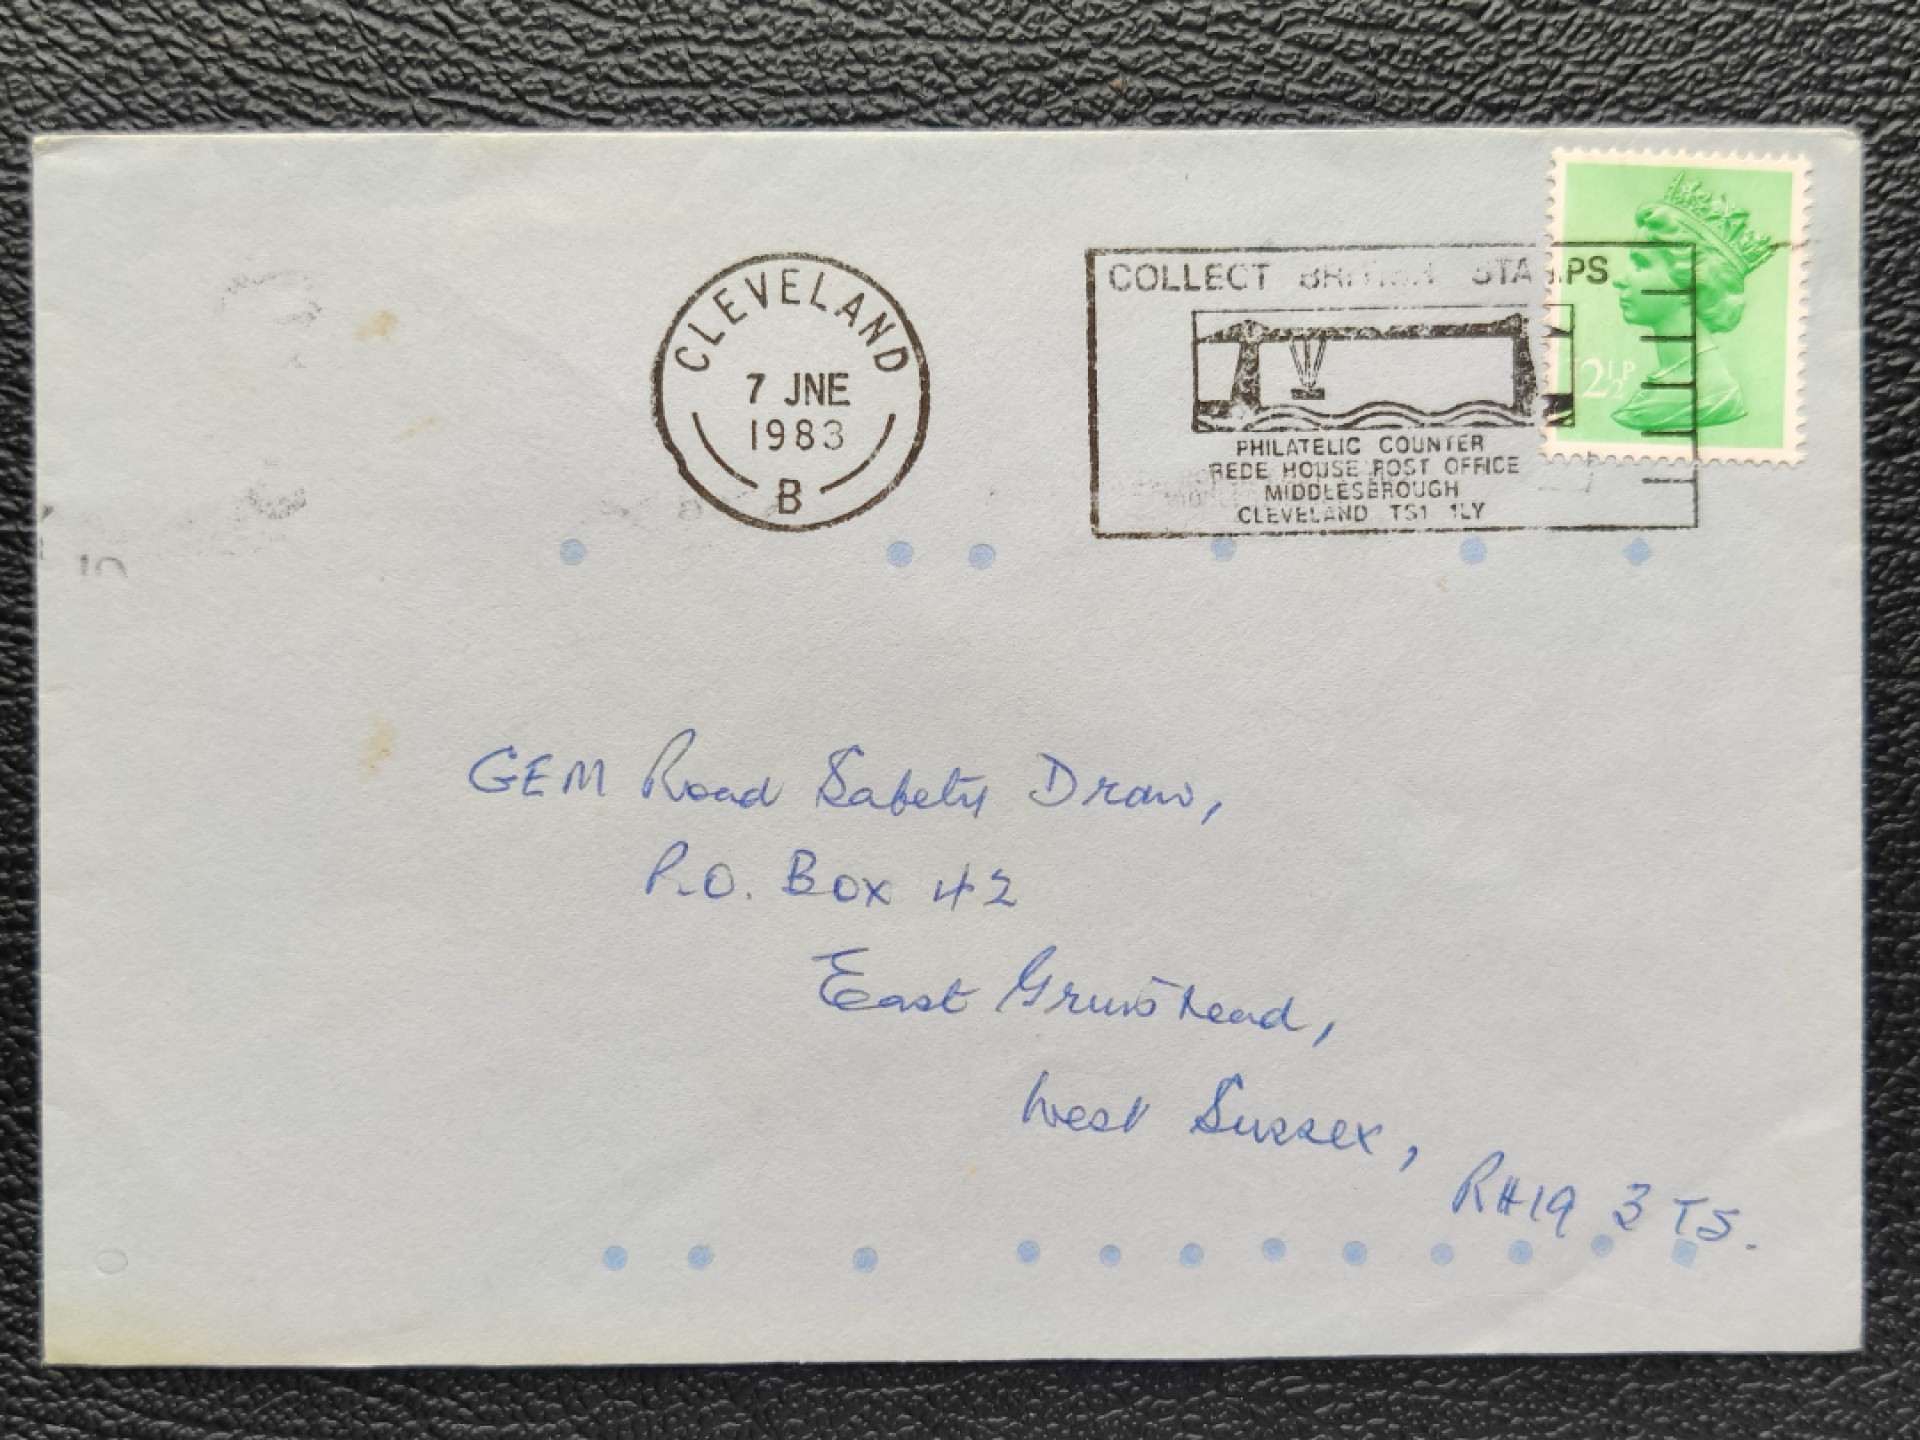 CLEVELAND
7 JNE
1983
B
COLLECT BRITISH STAMPS
PHILATELIC COUNTER
REDE HOUSE POST OFFICE
MIDDLESBROUGH
CLEVELAND TS1 1LY
2½P
GEM Road Safety Draw,
P.O. Box 42
East Grinstead,
West Sussex,
RH19 3TS.